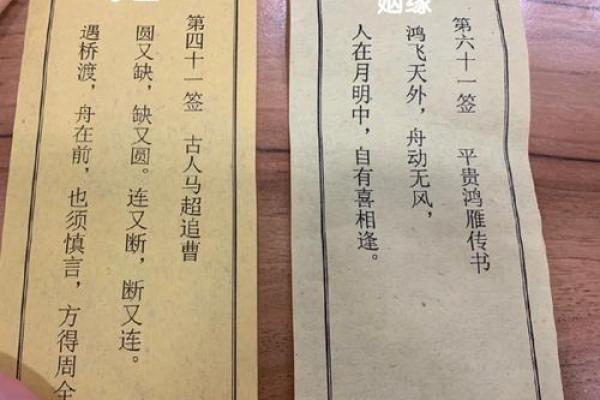 第四十一签 古人马超追曹
圆又缺，缺又圆。连又断，断又连。
遇桥渡，舟在前，也须慎言，方得周全
姻缘
第六十一签 平贵鸿雁传书
鸿飞天外，舟动无风，
人在月明中，自有喜相逢。